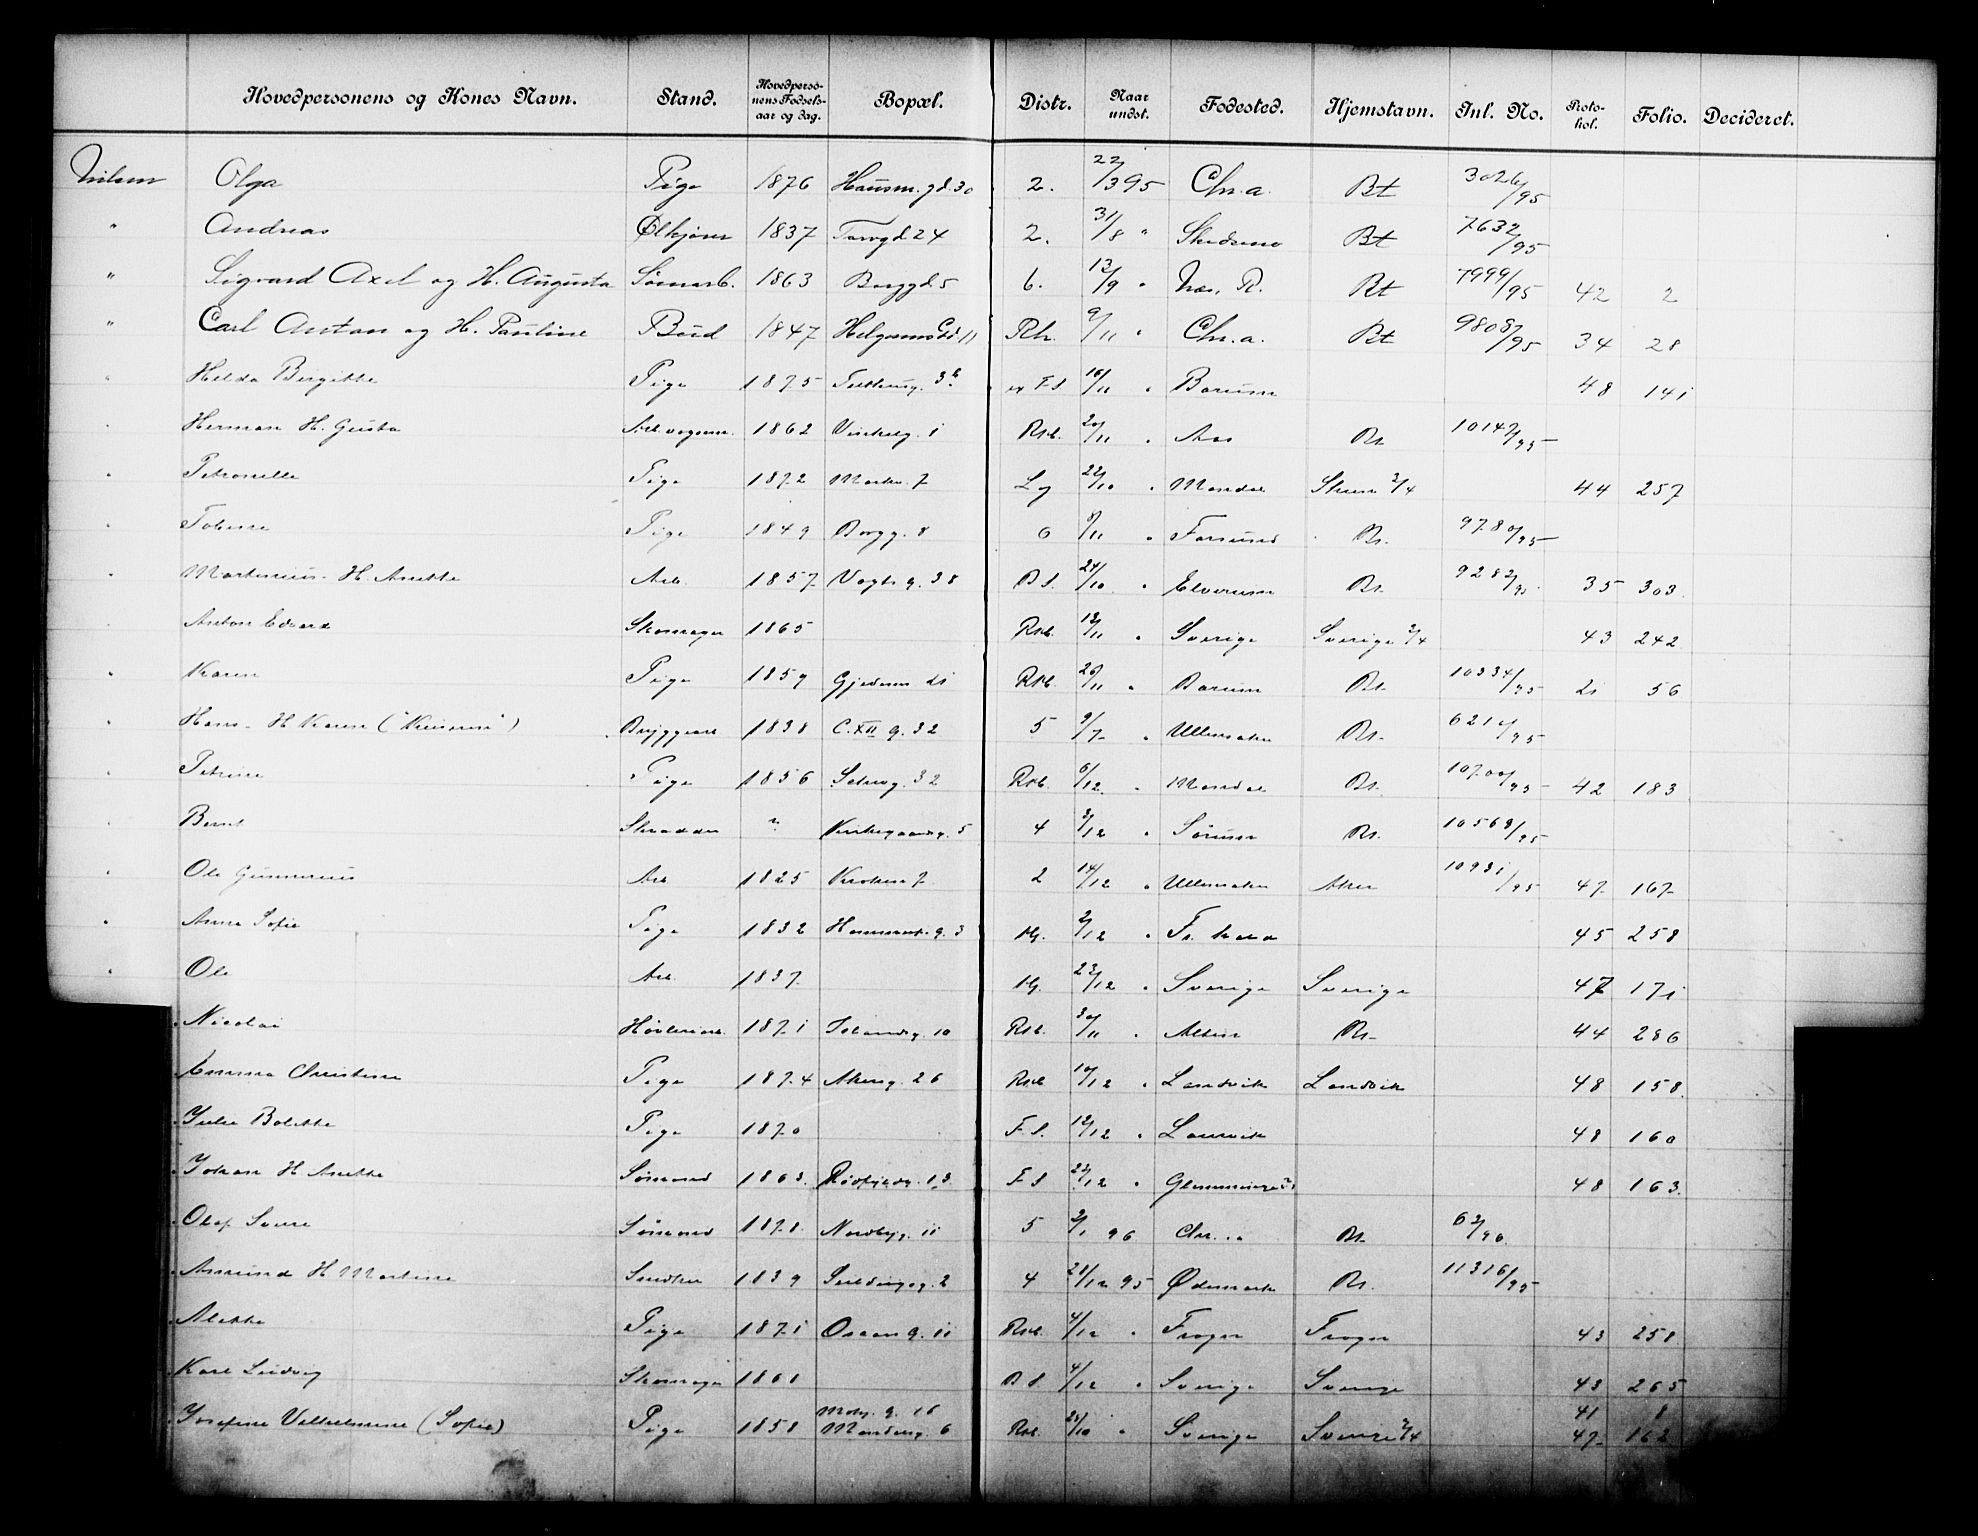 Hovedpersonens og Kones Navn. Stand. Hovedperso-nens Fødsels-aar og dag. Bopæl. Distr. Naar undst. Fødested. Hjemstavn. Inl. No. Proto-kol. Folio. Decideret.
Nilsen Olga Pige 1876 Hausm.gd. 30 2. 22/3 95 Chr.a. Bt 3026/95
" Andreas Ølkjører 1837 Torvgd 24 2. 31/8 " Skedsmo Bt 7632/95
" Sigvard Axel og H. Augusta 1863 Borggd 5 6. 13/9 " Næs, R. Bt 7999/95 42 2
" Carl Anton og H. Pauline Bud 1847 11 Rh. 9/11 " Chr.a. Bt 34 28
" Hilda Bergitte Pige 1875 F.S 16/11 " Bærum 48 141
" Herman H. Gusta 1862 Vinkelg. 1 Rsb. 20/11 " Aas Bt. 10147/95
" Petronelle Pige 1872 7 Lg 22/10 " Mandal 2/4 44 257
" Tobine Pige 1849 Borgg. 8 6 8/11 " Farsund Bt. 9780/95
" Martinius H. Anette Arb. 1857 Vogts g. 38 B.S. 24/10 " Elverum Bt. 35 303
" Anton Edvard Skomager 1865 Rsb. 12/11 " Sverige Sverige 2/4 43 242
" Karen Pige 1859 21 Rsb. 26/11 " Bærum Bt. 10334/95 21 56
" Hans H Karen Bryggearb 1838 C. XII g. 32 5 9/7 " Ullensaker Bt. /95
" Petrine Pige 1856 32 Rsb. 6/12 " Mandal Bt. 10700/95 42 183
" Bernt Skrædder ? Kirkegaardsg. 5 4 3/12 " Sørum Bt.
" Ole Gunnerius Arb 1825 7 2 14/12 " Ullensaker Aker 10931/95 47 167
" Anna Sofie Pige 1832 3 2/12 " Fr. hald 45 258
" Ole Arb. 1837 23/12 " Sverige Sverige 47 171
" Nicolai Høvleriarb. 1871 10 Rsb. 30/11 " Alten Bt. 44 286
" Emma Christine Pige 1874 Akersg. 26 Rsb 10/12 " Landvik Landvik 48 158
" Julie Bolette Pige 1870 F.S. 12/12 " Laurvik 48 160
" Johan H Anette Sømand 1863 F S 23/12 " 48 163
" Olaf Sømand Nordbyg. 11 5 2/1 96 Chr.a Bt. /96
" Amund H Martine Snedker 1839 Seildugsg. 2 4 21/12 95 Ødemark Bt. 11316/95
" Alette Pige 1871 11 Rsb. 4/12 " Frogn Frogn 43 258
" Karl Ludvig Skomager B S. 4/12 " Sverige Sverige 43 265
" Josefine Vilhelmine (Sofie) Pige 1858 16 6 Rsb. /10 " Sverige Sverige 2/4 41 8 47 162